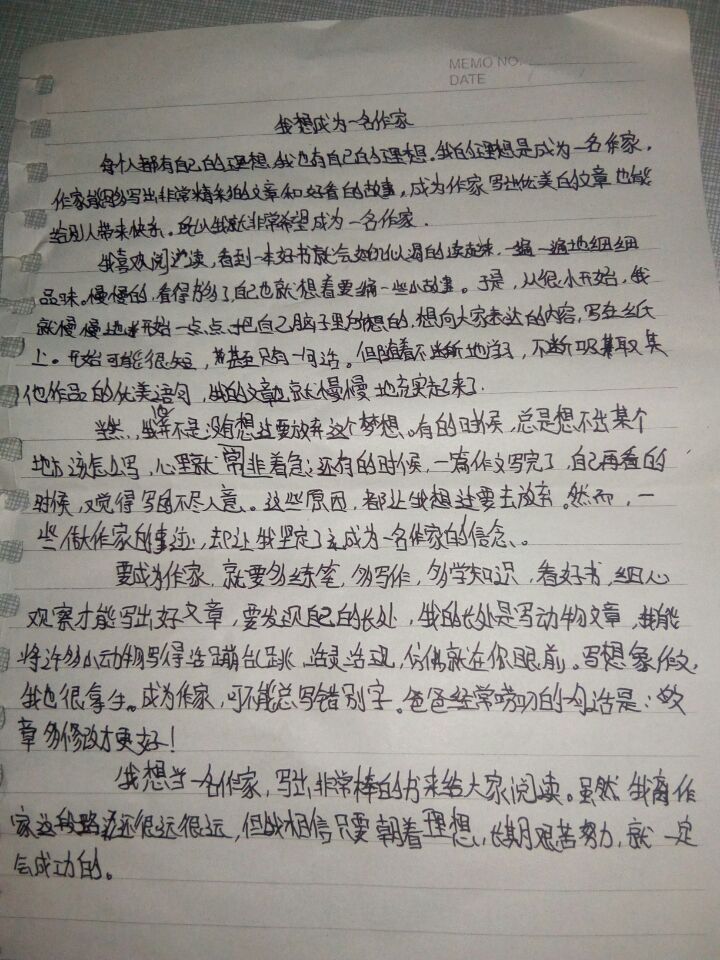 MEMO NO.
DATE
我想成为一名作家
每个人都有自己的理想,我也有自己的理想。我的理想是成为一名作家,
作家能够写出非常精彩的文章和好看的故事,成为作家写出优美的文章也能
给别人带来快乐。所以我就非常希望成为一名作家.
我喜欢阅读,看到一本好书就会如饥似渴的读起来,一遍一遍地细细
品味。慢慢的,看得多了自己也就想着要编一些小故事。于是,从很小开始,我
就慢慢地开始一点一点把自己脑子里所想的,想向大家表达的内容,写在纸
上。开始可能很短,甚至只有一句话。但随着不断地学习,不断吸取其
他作品的优美语句,我的文章也就慢慢地充实起来了.
当然,我并不是没有想过要放弃这个梦想。有的时候,总是想不出某个
地方该怎么写,心里就非常着急;还有的时候,一篇作文写完了,自己再看的
时候,又觉得写的不尽人意。这些原因,都让我想过要去放弃。然而,一
些做作家的事迹,却让我坚定了成为一名作家的信念。
要成为作家,就要多练笔,多写作,多学知识,看好书,细心
观察才能写出好文章,要发现自己的长处,我的长处是写动物文章,我能
将许多小动物写得活蹦乱跳,活灵活现,仿佛就在你眼前。写想象作文,
我也很拿手。成为作家,可不能总写错别字。爸爸经常唠叨的一句话是:文
章多修改才更好!
我想当一名作家,写出非常棒的书来给大家阅读。虽然我离作
家这段路还很远很远,但我相信只要朝着理想,长期艰苦努力,就一定
会成功的。